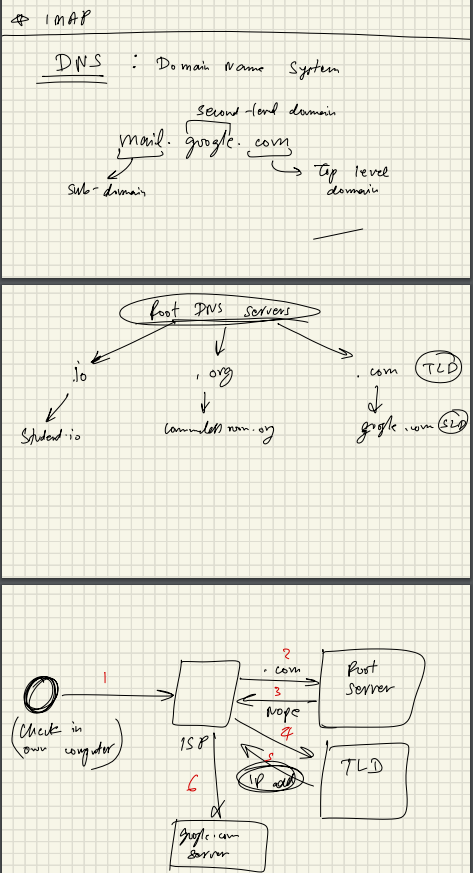 * IMAP
DNS : Domain Name System
Second-level domain
mail. google. com
Sub-domain
Top level
domain
Root DNS servers
.io
.org
.com TLD
Student.io
google.com SLD
1
2
.com
3
Nope
Root
Server
(Check in
own computer)
ISP
4
5
IP add
TLD
6
google.com
server